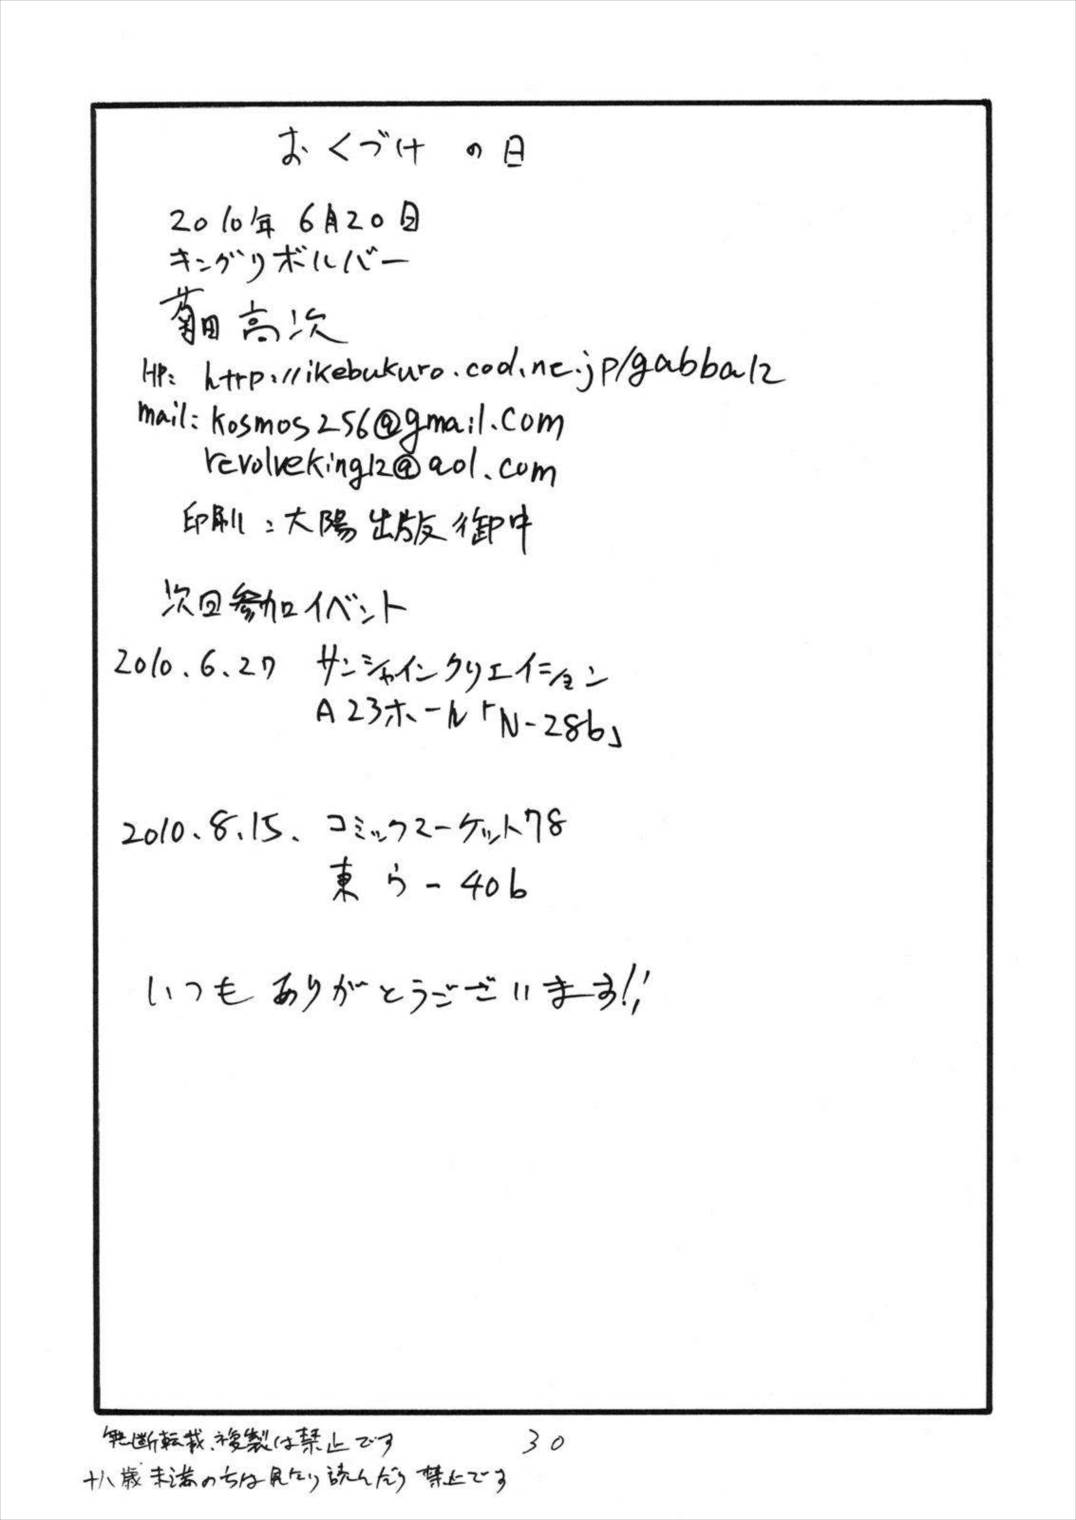 おくづけ の日
2010年 6月20日
キングリボルバー
菊田 高次
HP: http://ikebukuro.cool.ne.jp/gabba12
mail: kosmos256@gmail.com
revolveking12@aol.com
印刷: 大陽出版 御中
次回参加イベント
2010.6.27 サンシャインクリエイション
A23ホール「N-28b」
2010.8.15. コミックマーケット78
東 う-40b
いつも ありがとうございます!!
無断転載、複製は禁止です 30
十八歳未満のちは見たり読んだり禁止です